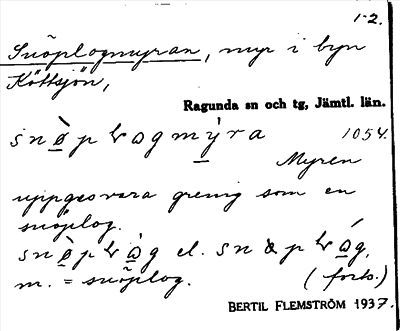 1-2.
Snöplogmyran, myr i byn
Köttsjön,
Ragunda sn och tg, Jämtl. län.
snø̠̀plo̠gmý̠ra 1054.
Myren
uppges vara grenig som en
snöplog.
snø̠̀plɑ̠̀g el. snø̀plɑ̠́g,
m. = snöplog. (forts.)
BERTIL FLEMSTRÖM 1937.